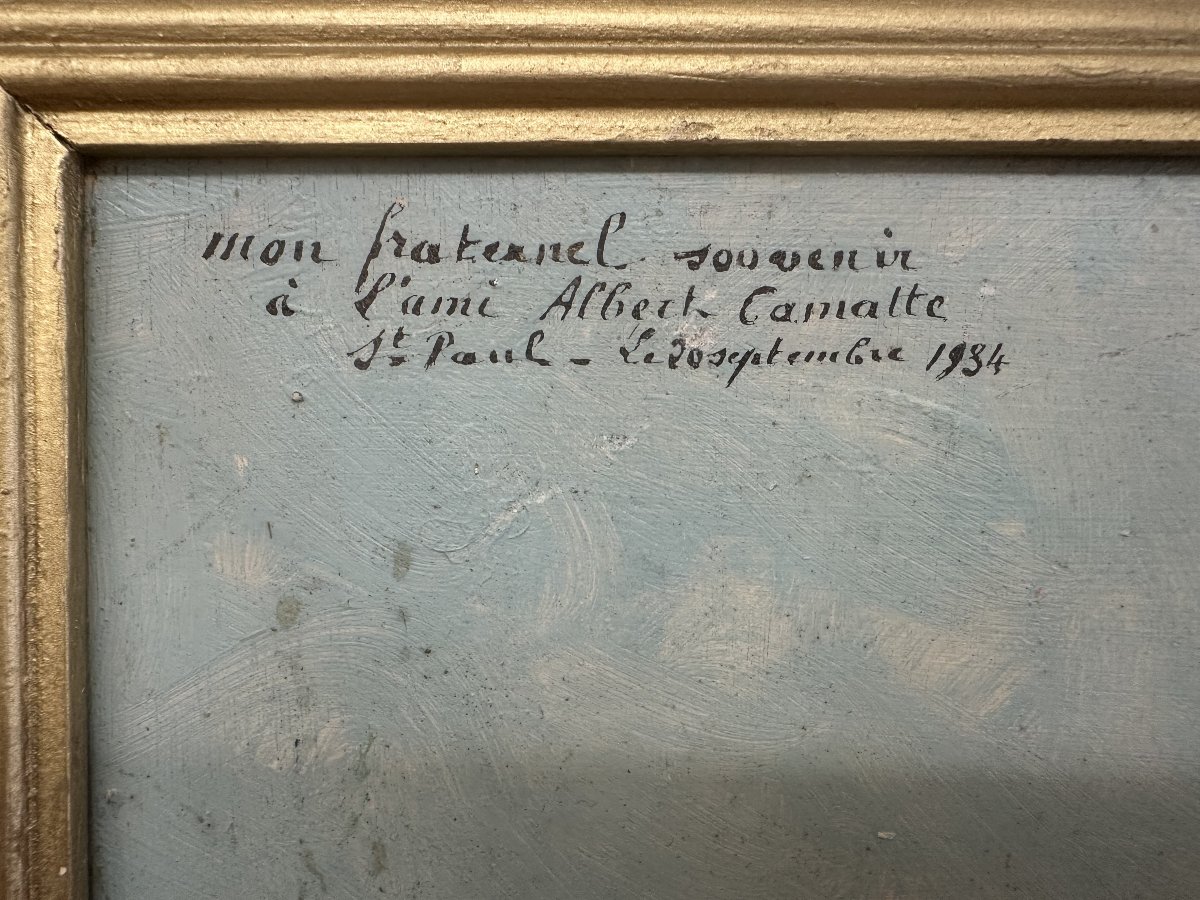 mon fraternel souvenir
à l'ami Albert Camatte
St Paul - Le 20 septembre 1934